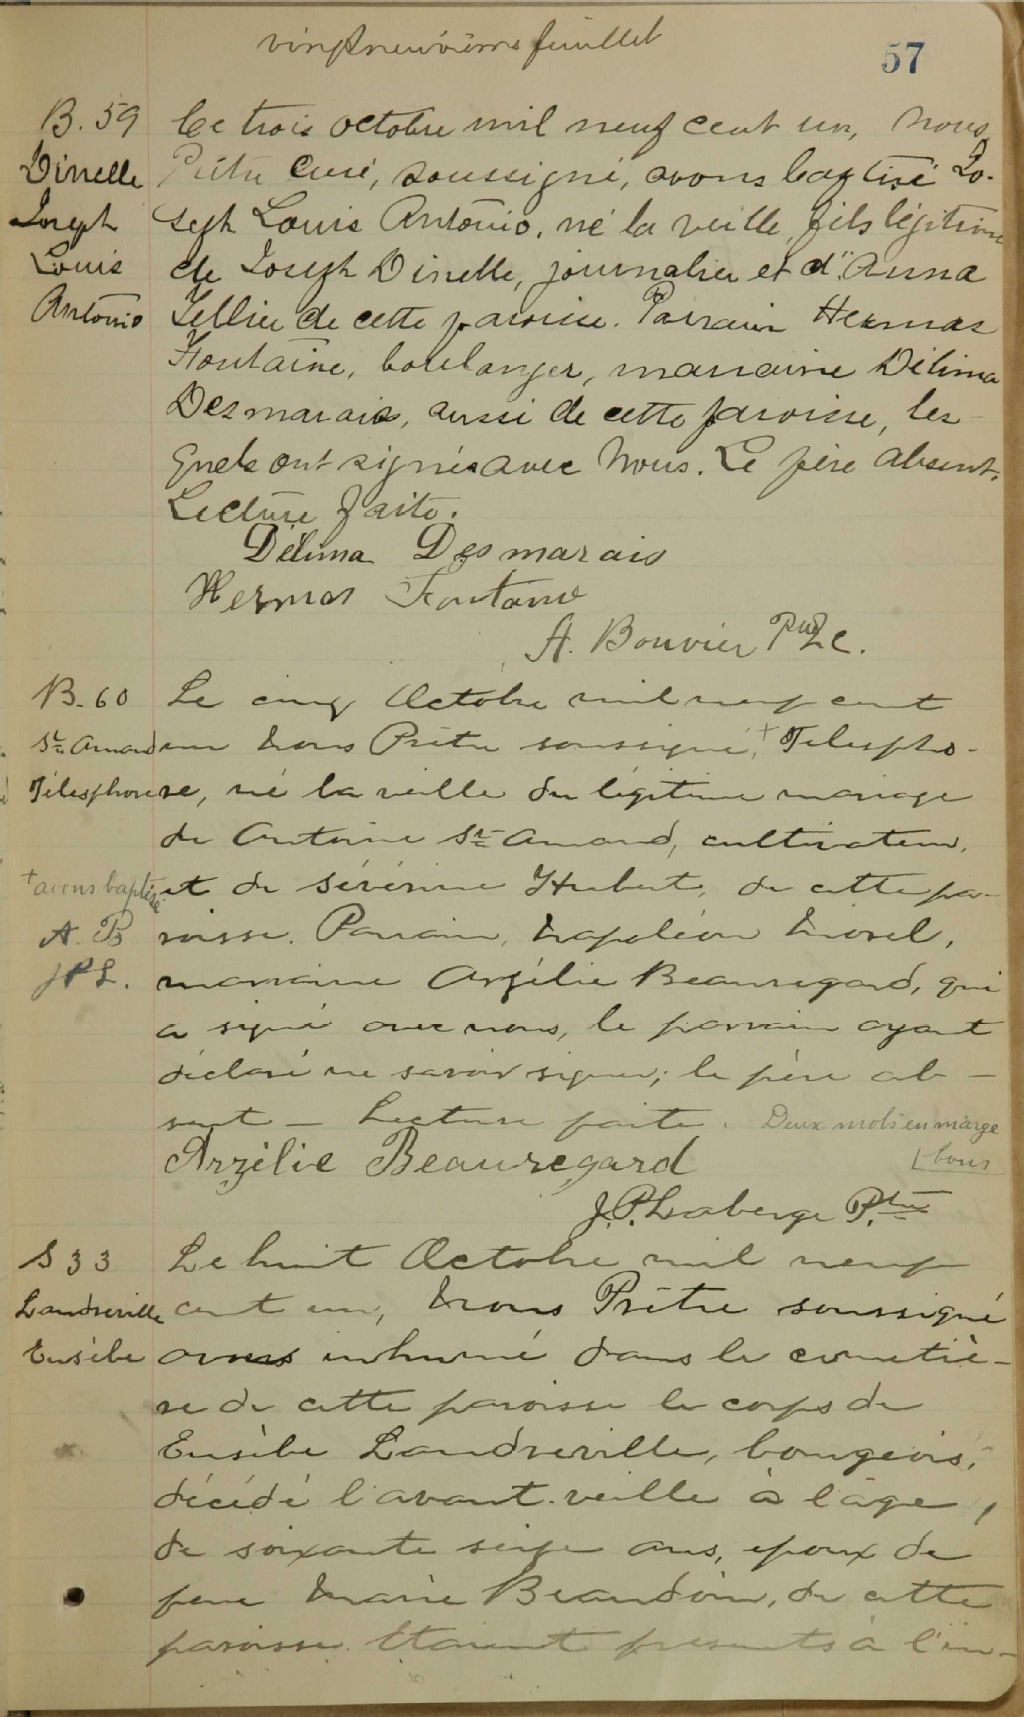 vingt neuvième feuillet
57
B. 59
Dinelle
Joseph
Louis
Antonio
Le trois octobre mil neuf cent un, Nous
Prêtre Curé, soussigné, avons baptisé Jo-
seph Louis Antonio, né la veille, fils légitime
de Joseph Dinelle, journalier et d'Anna
Tellier de cette paroisse. Parrain Hermas
Fontaine, boulanger, marraine Délima
Desmarais, aussi de cette paroisse, les-
quels ont signés avec Nous. Le père absent.
Lecture faite.
Délima Desmarais
Hermas Fontaine
A. Bouvier Ptre C.
B. 60
St Amand
Télesphore
+ avons baptisé
A. B
JPL.
Le cinq Octobre mil neuf cent
un Nous Prêtre soussigné, + Télespho-
re, né la veille du légitime mariage
de Antoine St Amand, cultivateur,
et de Séverine Hubert, de cette pa-
roisse. Parrain, Napoléon Morel,
marraine Arzélie Beauregard, qui
a signé avec nous, le parrain ayant
déclaré ne savoir signer; le père ab-
sent — Lecture faite. Deux mots en marge
bons
Arzélie Beauregard
J.P. Laberge Ptre
S 33
Landreville
Eusèbe
Le huit Octobre mil neuf
cent un, Nous Prêtre soussigné
avons inhumé dans le cimetiè-
re de cette paroisse le corps de
Eusèbe Landreville, bourgeois,
décédé l'avant-veille à l'âge
de soixante seize ans, époux de
feue Marie Beaudoin, de cette
paroisse. Etaient présents à l'in-